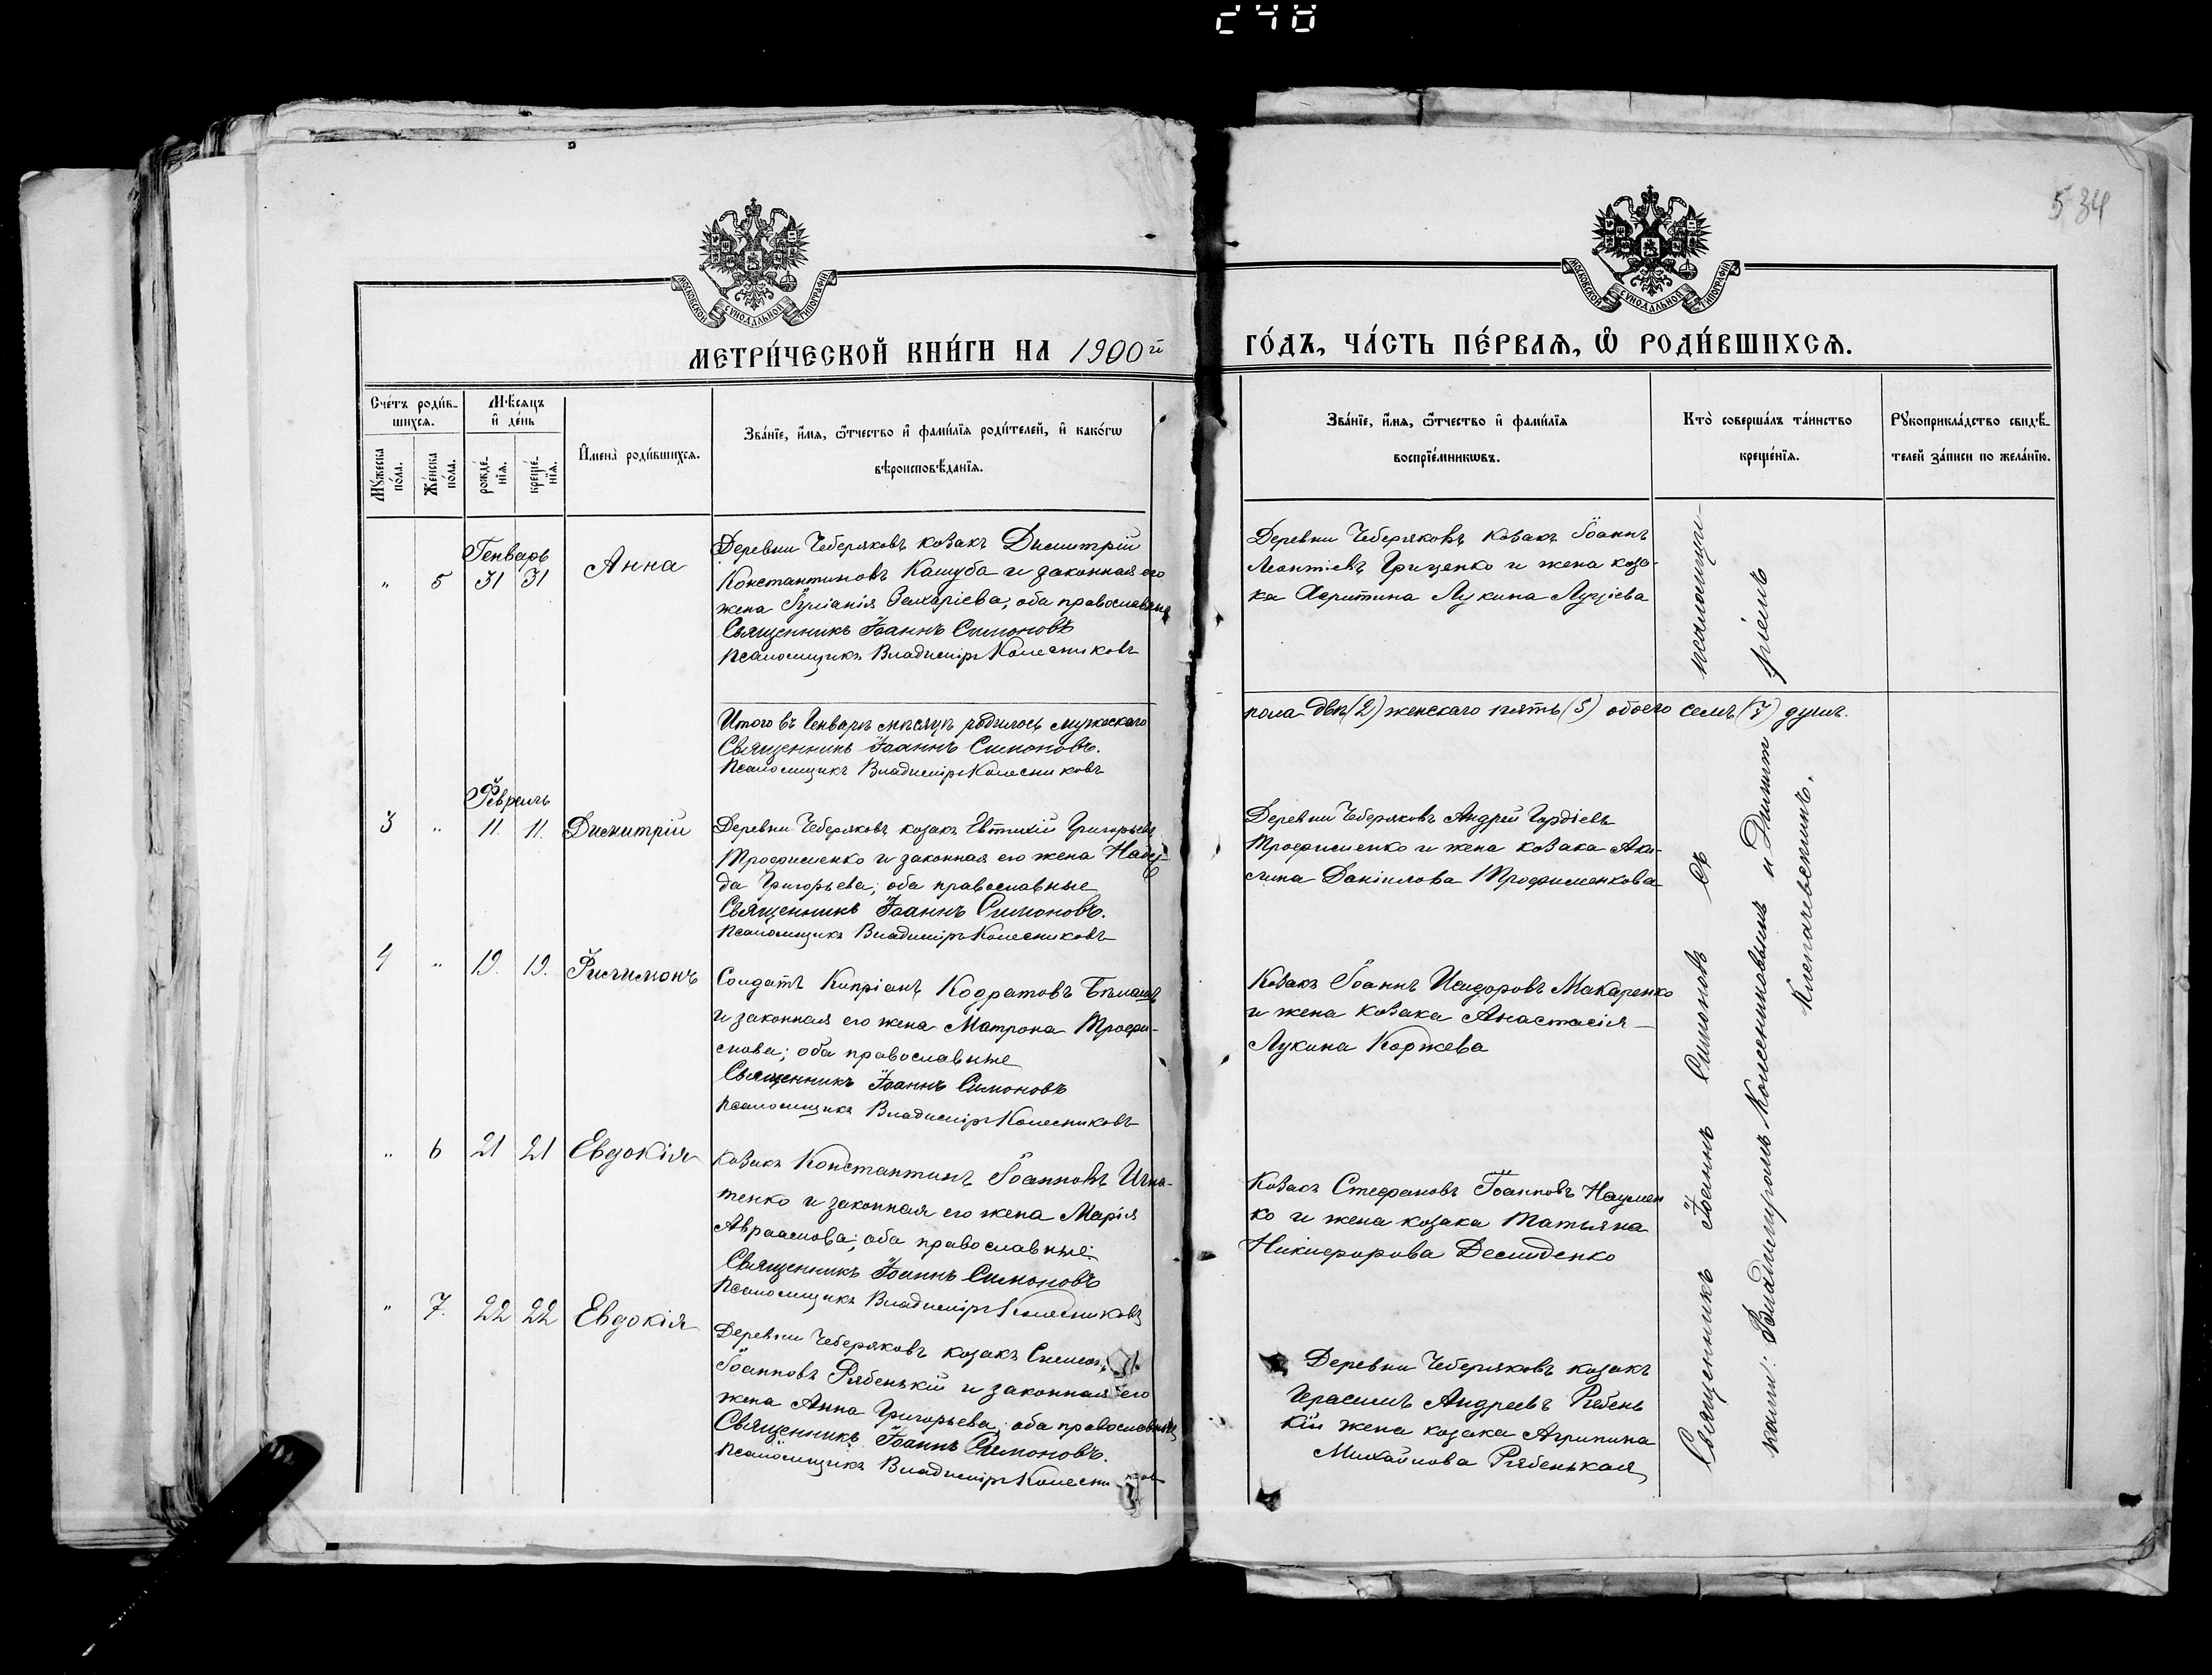 534
МОСКОВСКОЙ СУНОДАЛЬНОЙ ТИПОГРАФІИ
МОСКОВСКОЙ СУНОДАЛЬНОЙ ТИПОГРАФІИ
МЕТРИ́ЧЕСКОЙ КНИ́ГИ НА 1900й
ГО́ДЪ, ЧА́СТЬ ПЕ́РВАЯ, Ѡ РОДИ́ВШИХСЯ.
Сче́тъ роди́в-
шихся.
Мꙋ́жеска по́ла.
Же́нска по́ла.
Мѣ́сяцъ
и҆ де́нь
рожде́-
нїя.
креще́-
нїя.
И҆мена̀ роди́вшихся.
Зва́нїе, и҆́мя, ѻ҆́тчество и҆ фами́лїя роди́телей, и҆ како́гѡ
вѣроисповѣ́данїя.
Зва́нїе, и҆́мя, ѻ҆́тчество и҆ фами́лїя
воспрїе́мникѡвъ.
Кто̀ соверша́лъ та́инство
креще́нїя.
Рꙋкоприкла́дство свидѣ́-
телей за́писи по жела́нїю.
Генварь
" 5 31 31 Анна
Деревни Чеберяковъ козакъ Димитрій
Константиновъ Кашуба и законная его
жена Іуліанія Захаріева; оба православные
Священникъ Іоаннъ Симоновъ
Псаломщикъ Владиміръ Колесниковъ
Деревни Чеберяковъ козакъ Іоаннъ
Леонтіевъ Гриценко и жена коза-
ка Лукина
Итого въ Генварѣ мѣсяцѣ родилось мужескаго
пола два (2) женскаго пять (5) обоего семь (7) душъ.
Священникъ Іоаннъ Симоновъ.
Псаломщикъ Владиміръ Колесниковъ
Февраль
3 " 11. 11. Димитрій
Деревни Чеберяковъ козакъ Евтихій Григорьевъ
Трофименко и законная его жена Надеж-
да Григорьева; оба православные
Священникъ Іоаннъ Симоновъ.
Псаломщикъ Владиміръ Колесниковъ
Деревни Чеберяковъ Андрей Гордіевъ
Трофименко и жена козака Аки-
лина Даніилова Трофименкова
4 " 19. 19. Филимонъ
Солдатъ Кипріанъ Кодратовъ
и законная его жена Матрона Трофи-
мова; оба православные
Священникъ Іоаннъ Симоновъ
Псаломщикъ Владиміръ Колесниковъ
Козакъ Іоаннъ Исидоровъ Макаренко
и жена козака Анастасія
Лукина Коржева
" 6 21 21 Евдокія
Козакъ Константинъ Іоанновъ Игна-
тенко и законная его жена Марія
Авраамова; оба православные
Священникъ Іоаннъ Симоновъ
Псаломщикъ Владиміръ Колесниковъ
Козакъ Стефановъ Іоанновъ Наумен
ко и жена козака Татьяна
Никифорова Демиденко
" 7. 22 22 Евдокія
Деревни Чеберяковъ козакъ
Іоанновъ Рябенькій и законная его
жена Анна Григорьева; оба православные
Священникъ Іоаннъ Симоновъ.
Псаломщикъ Владиміръ Колесниковъ
Деревни Чеберяковъ козакъ
Герасимъ Андреевъ Рябень
кій жена козака Агрипина
Михайлова Рябенькая
Священникъ Іоаннъ Симоновъ съ псаломщи-
ками: Владиміромъ Колесниковымъ и Димит
ріемъ